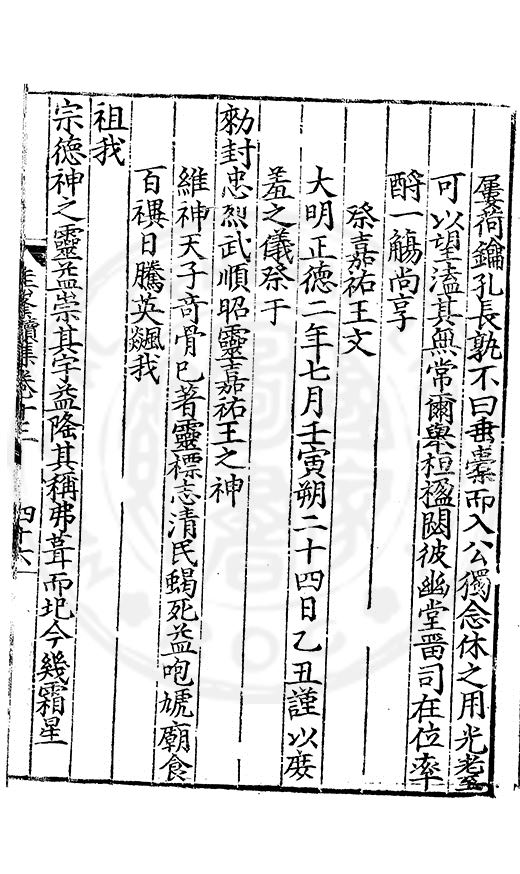 屢荷鑰孔長孰不曰垂橐而入公獨念休之用光耋
可以望溘其無常爾舉桓楹閟彼幽堂畱司在位率
酹一觴尚享
祭嘉祐王文
大明正德二年七月壬寅朔二十四日乙丑謹以庶
羞之儀祭于
勑封忠烈武順昭靈嘉祐王之神
維神天子竒骨巳著靈標志清民蝎死益咆虓廟食
百禩日騰英飈我
祖我
宗德神之靈益崇其字益隆其稱弗葺而圯今幾霜星
集卷十二
四十六